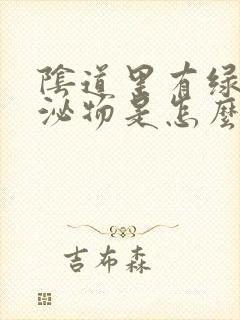 陰道里有绿
泌物是怎麼
吉布森